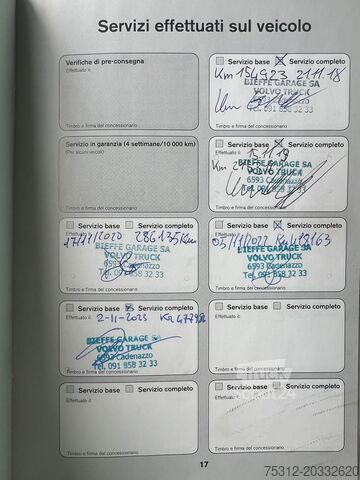 Servizi effettuati sul veicolo
Verifiche di pre-consegna
Effettuato il:
Timbro e firma del concessionario
Servizio base Servizio completo
Km 154923 21.11.18
BIEFFE GARAGE SA
VOLVO TRUCK
Tel. 091 858 32 33
Timbro e firma del concessionario
Servizio in garanzia (4 settimane/10 000 km)
(Per alcuni veicoli)
Effettuato il:
Timbro e firma del concessionario
Servizio base Servizio completo
Km
BIEFFE GARAGE SA
VOLVO TRUCK
6593 Cadenazzo
Tel. 091 858 32 33
Timbro e firma del concessionario
Servizio base Servizio completo
17/11/2020 286135km
BIEFFE GARAGE SA
VOLVO TRUCK
6593 Cadenazzo
Tel. 091 858 32 33
Timbro e firma del concessionario
Servizio base Servizio completo
05/11/2022
BIEFFE GARAGE SA
VOLVO TRUCK
6593 Cadenazzo
Tel. 091 858 32 33
Timbro e firma del concessionario
Servizio base Servizio completo
Effettuato il:
2-11-2023
BIEFFE GARAGE SA
VOLVO TRUCK
6593 Cadenazzo
Tel. 091 858 32 33
Timbro e firma del concessionario
Servizio base Servizio completo
Effettuato il:
Timbro e firma del concessionario
Servizio base Servizio completo
Effettuato il:
Timbro e firma del concessionario
Servizio base Servizio completo
Effettuato il:
Timbro e firma del concessionario
17
75312-20332620